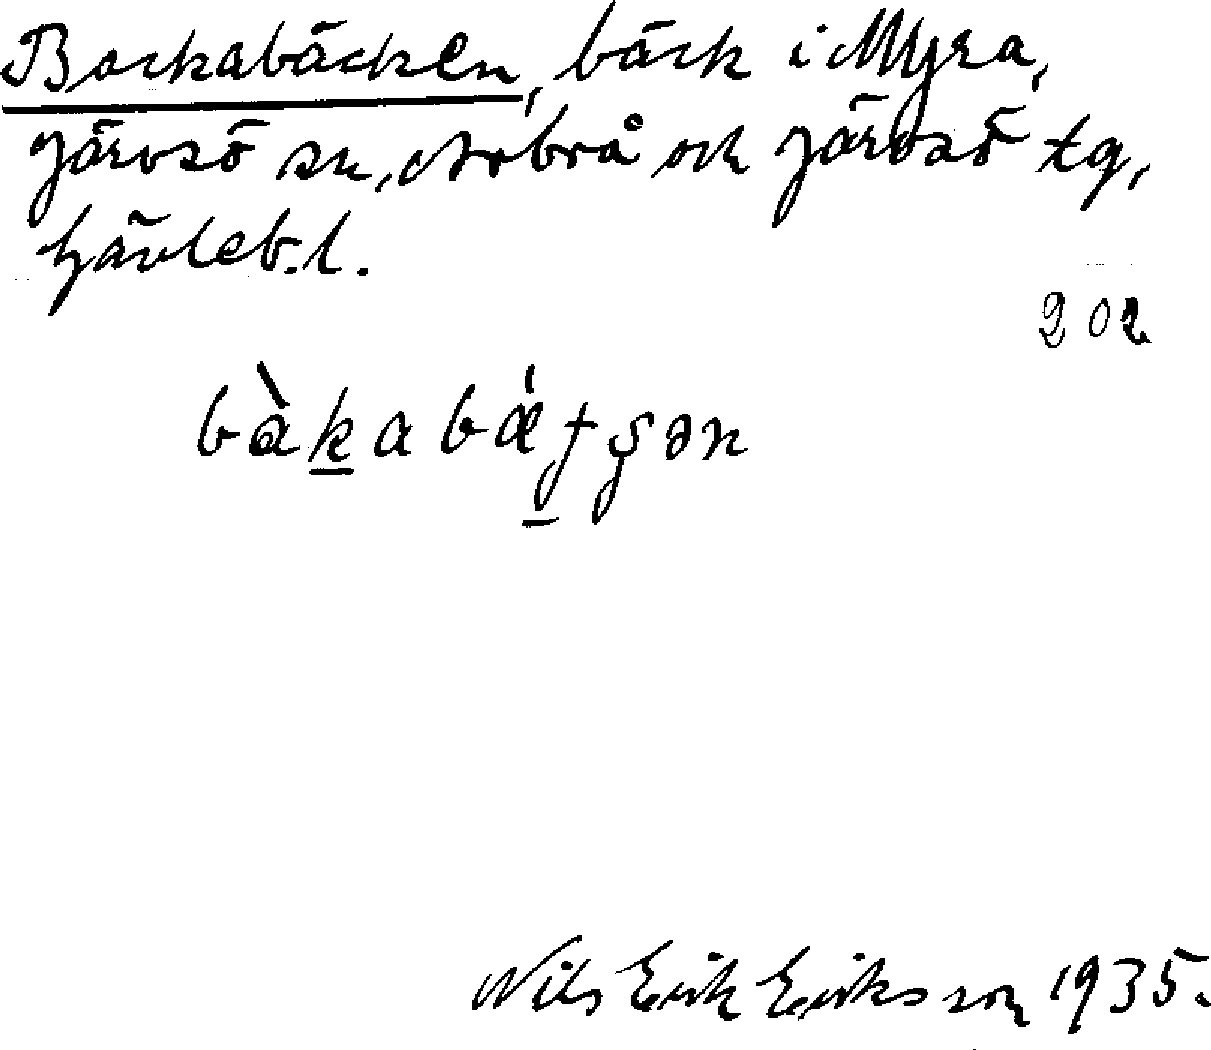 Bockabäcken, bäck i Myra,
Järvsö sn, Arbrå och Järvsö tg,
Gävleb. l.
202
bàkabǽtʂən
Nils Erik Eriksson 1935.